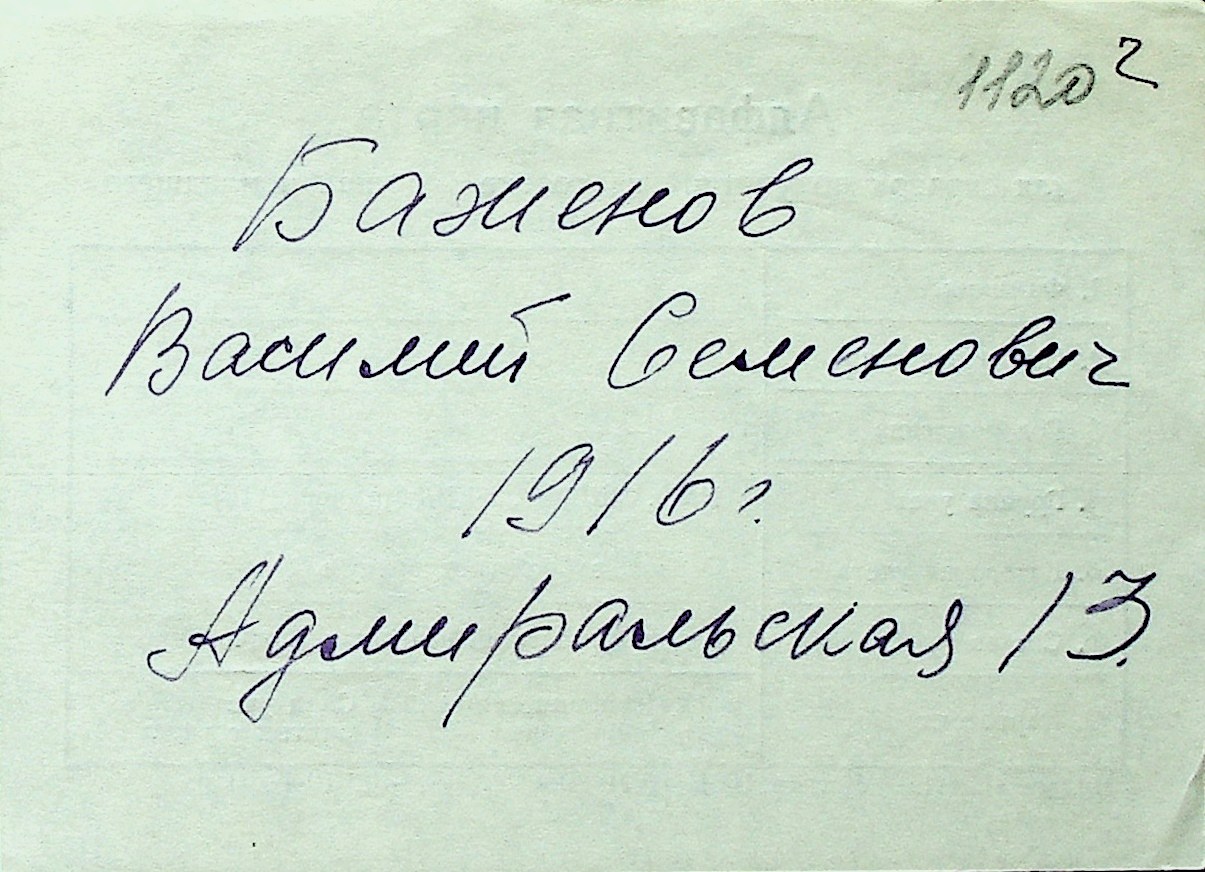 1120 ч
Баженов
Василий Семенович
1916 г.
Адмиральская 13.